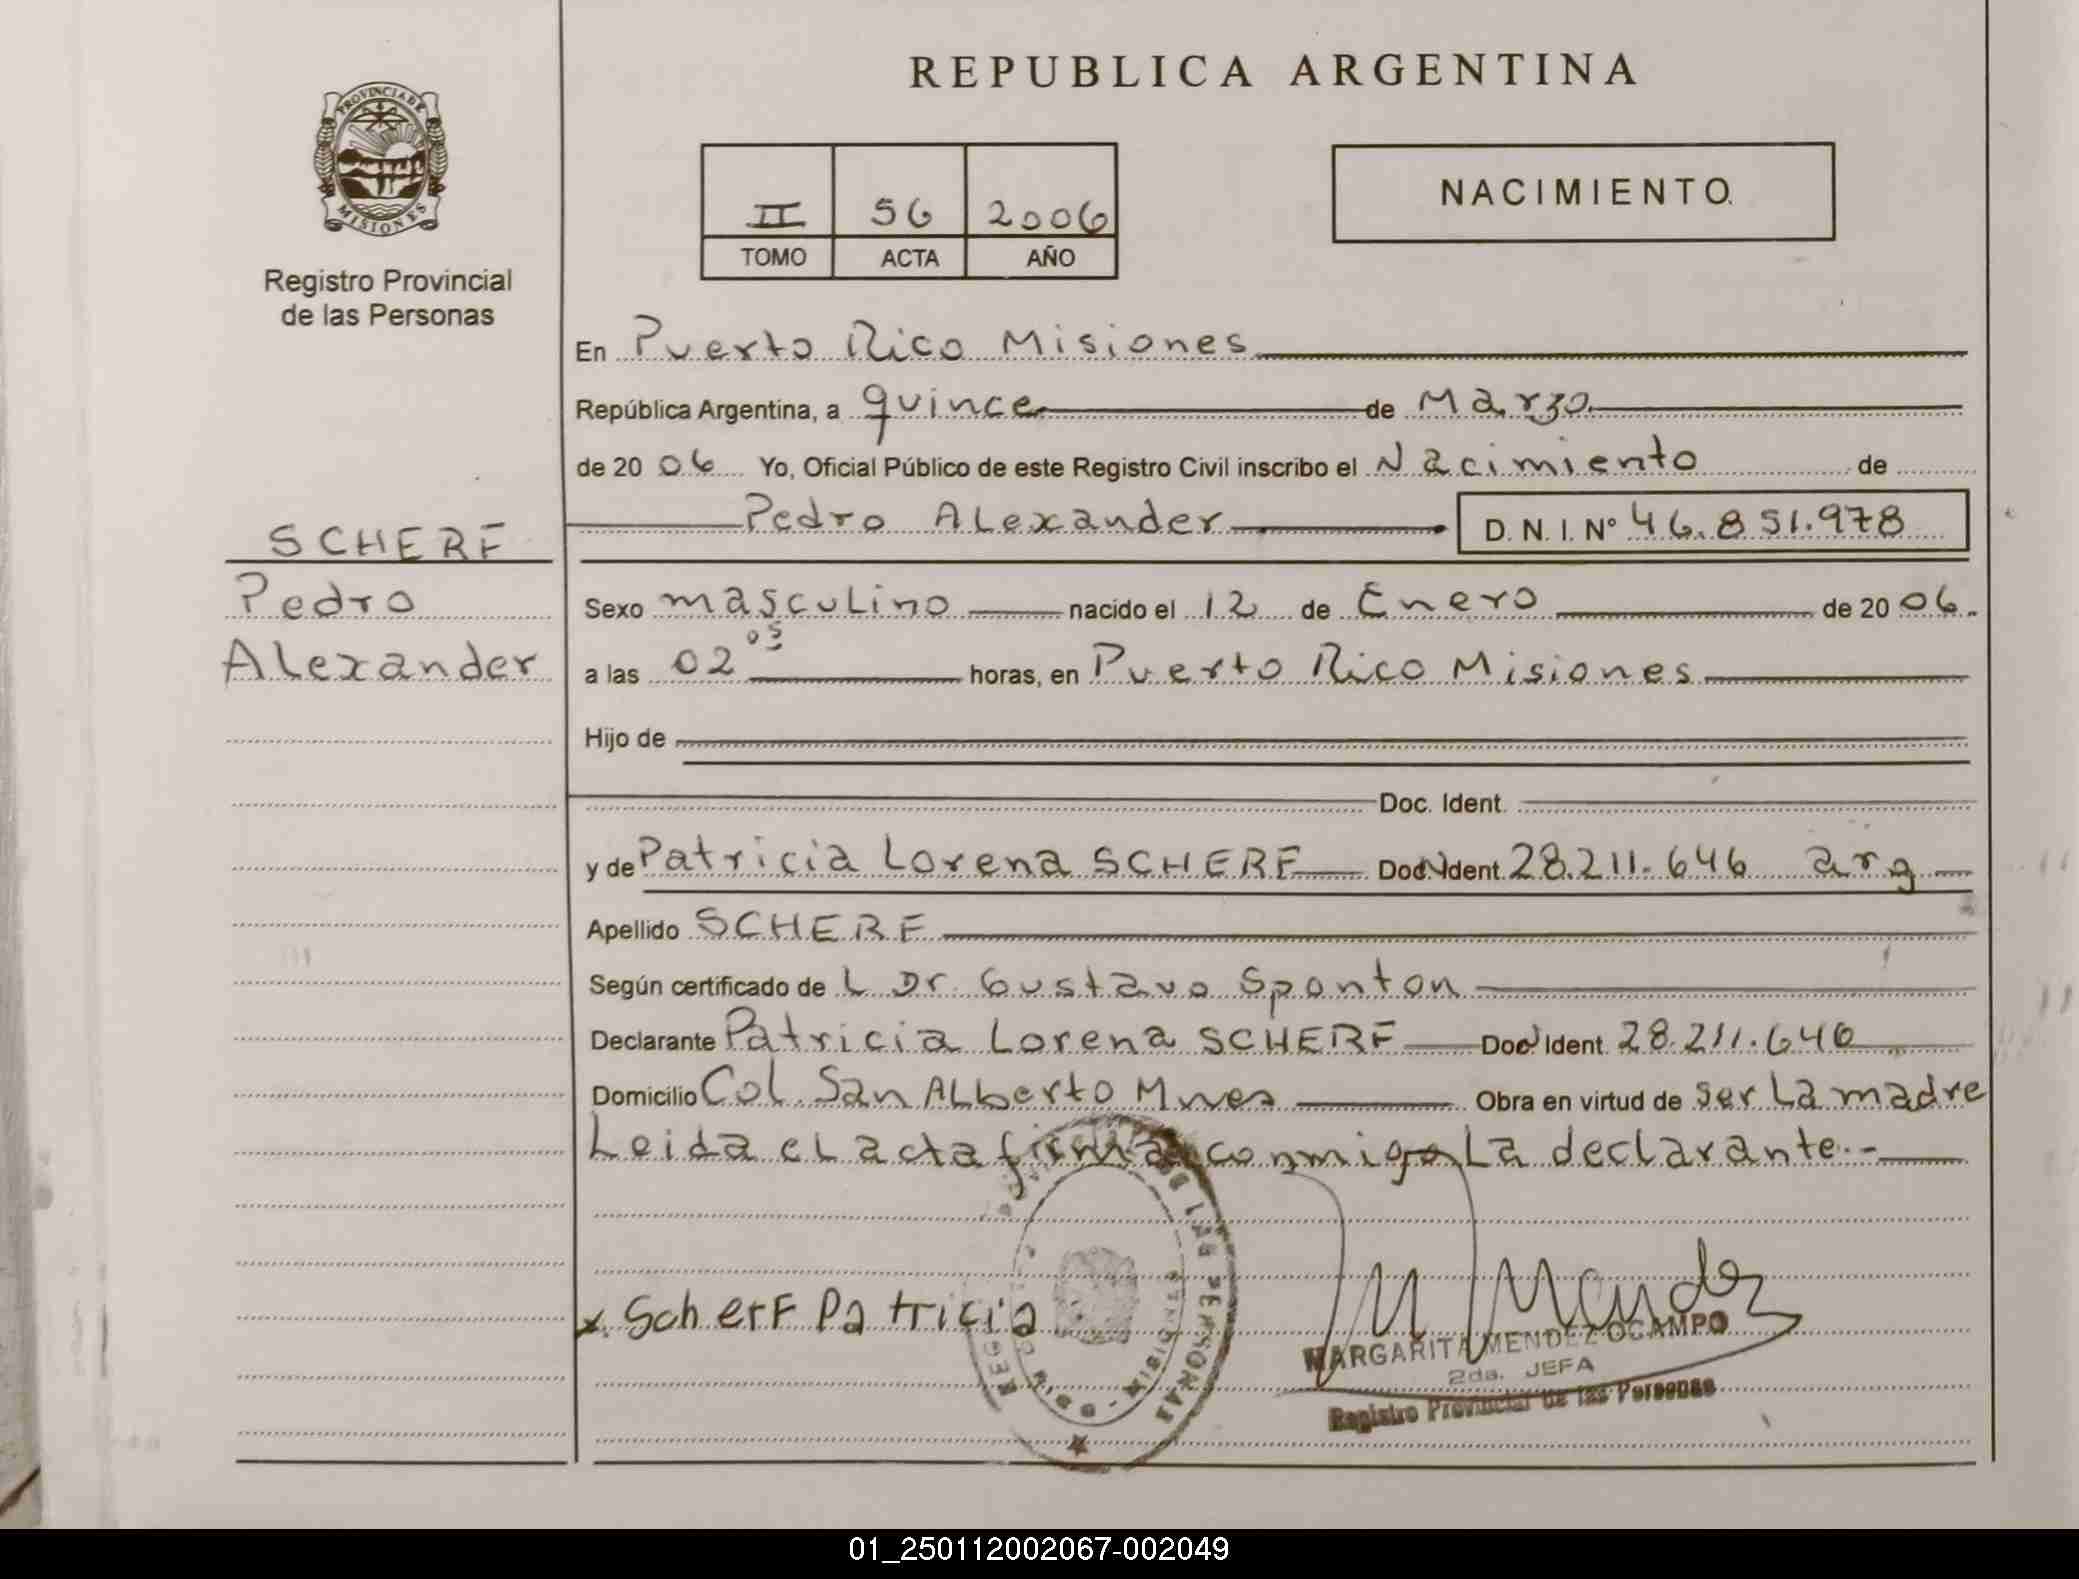 REPUBLICA ARGENTINA
PROVINCIA DE
MISIONES
Registro Provincial
de las Personas
II 56 2006
TOMO ACTA AÑO
NACIMIENTO
En Puerto Rico Misiones
República Argentina, a quince de Marzo
de 20 06 Yo, Oficial Público de este Registro Civil inscribo el Nacimiento de
Pedro Alexander D. N. I. Nº 46.851.978
SCHERF
Pedro
Alexander
Sexo masculino nacido el 12 de Enero de 20 06.
a las 02 05 horas, en Puerto Rico Misiones
Hijo de
Doc. Ident.
y de Patricia Lorena SCHERF Doc. Ident. 28.211.646 arg
Apellido SCHERF
Según certificado de L Dr. Gustavo Sponton
Declarante Patricia Lorena SCHERF Doc. Ident. 28.211.646
Domicilio Col. San ALberto Mnes Obra en virtud de ser La madre
Leida el acta firma conmigo La declarante.-
x ScherF Patricia
M Mendez
MARGARITA MENDEZ OCAMPO
2da. JEFA
Registro Provincial de las Personas
DE LAS PERSONAS
01_250112002067-002049